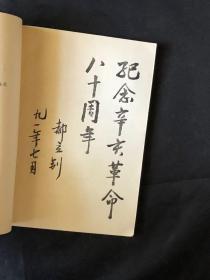 纪念辛亥革命
八十周年
郝立刻
九一年七月